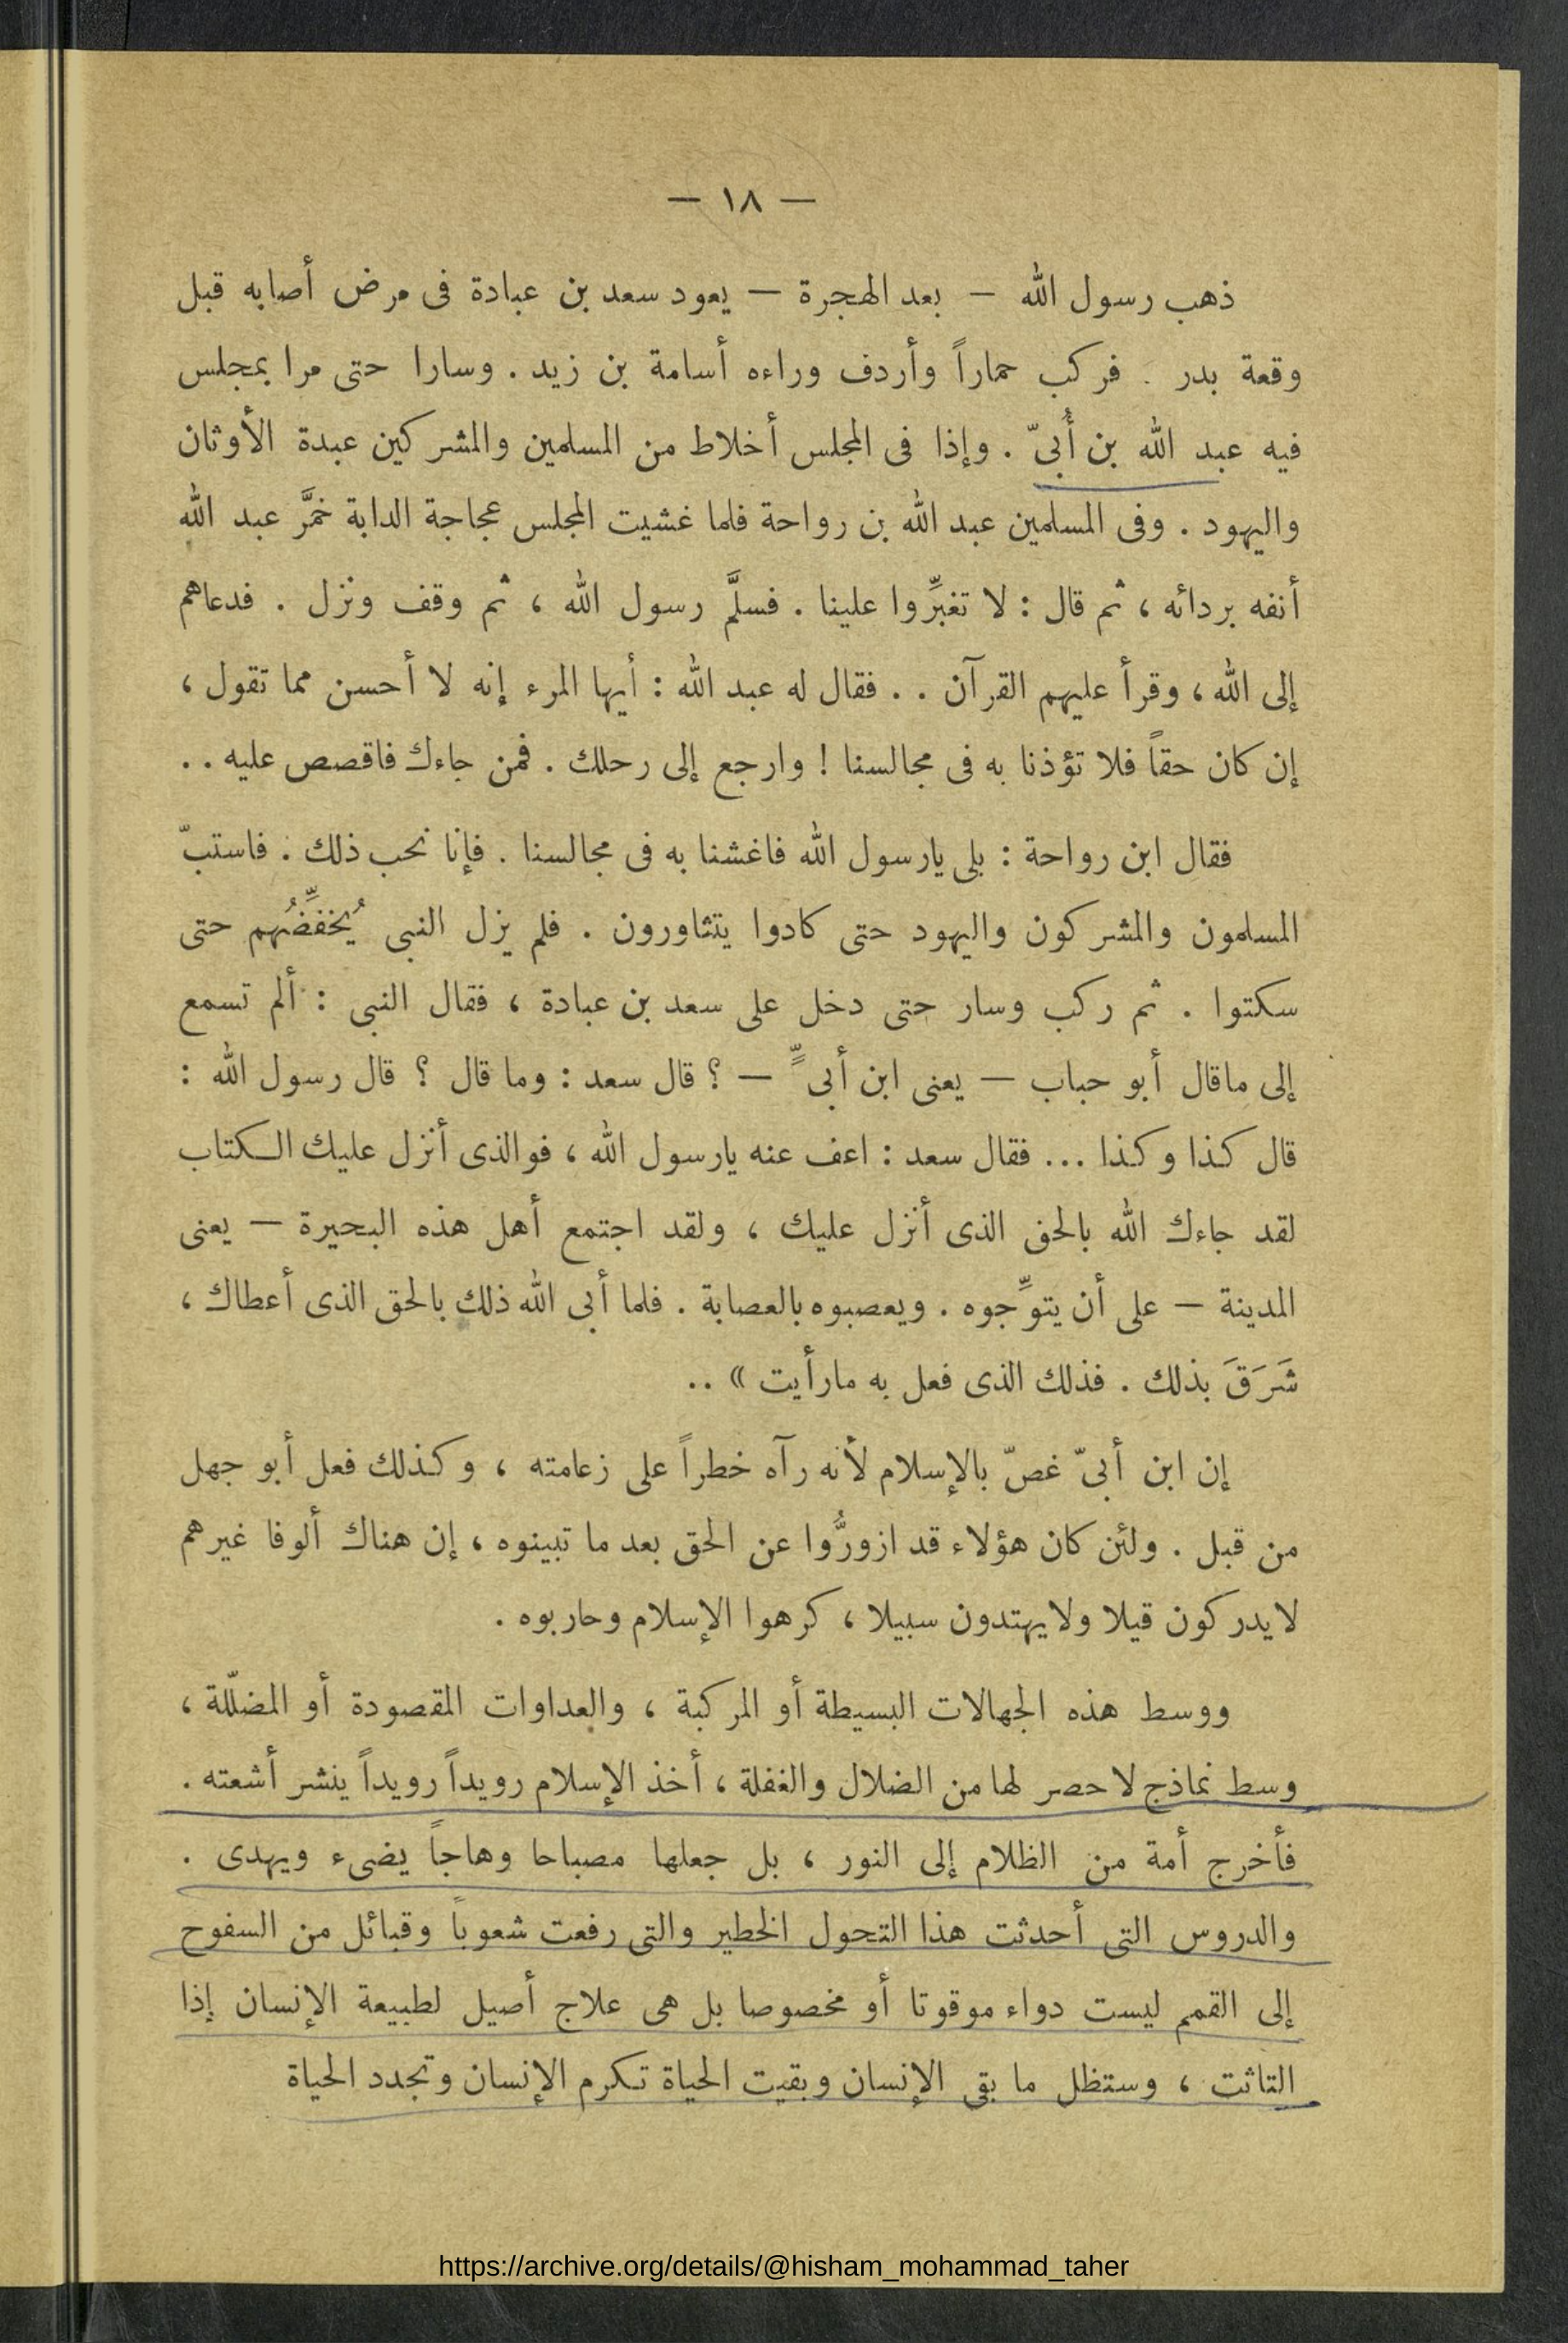 — ١٨ —
ذهب رسول الله — بعد الهجرة — يعود سعد بن عبادة فى مرض أصابه قبل
وقعة بدر . فركب حماراً وأردف وراءه أسامة بن زيد . وسارا حتى مرا بمجلس
فيه عبد الله بن أُبىّ . وإذا فى المجلس أخلاط من المسلمين والمشركين عبدة الأوثان
واليهود . وفى المسلمين عبد الله بن رواحة فلما غشيت المجلس عجاجة الدابة خمَّر عبد الله
أنفه بردائه ، ثم قال : لا تغبِّروا علينا . فسلَّم رسول الله ، ثم وقف ونزل . فدعاهم
إلى الله ، وقرأ عليهم القرآن . . فقال له عبد الله : أيها المرء إنه لا أحسن مما تقول ،
إن كان حقاً فلا تؤذنا به فى مجالسنا ! وارجع إلى رحلك . فمن جاءك فاقصص عليه . .
فقال ابن رواحة : بلى يارسول الله فاغشنا به فى مجالسنا . فإنا نحب ذلك . فاستبّ
المسلمون والمشركون واليهود حتى كادوا يتثاورون . فلم يزل النبى يُخفِّضُهم حتى
سكتوا . ثم ركب وسار حتى دخل على سعد بن عبادة ، فقال النبى : ألم تسمع
إلى ماقال أبو حباب — يعنى ابن أبىٍّ — ؟ قال سعد : وما قال ؟ قال رسول الله :
قال كذا وكذا ... فقال سعد : اعف عنه يارسول الله ، فوالذى أنزل عليك الكتاب
لقد جاءك الله بالحق الذى أنزل عليك ، ولقد اجتمع أهل هذه البحيرة — يعنى
المدينة — على أن يتوِّجوه . ويعصبوه بالعصابة . فلما أبى الله ذلك بالحق الذى أعطاك ،
شَرَقَ بذلك . فذلك الذى فعل به مارأيت » ..
إن ابن أبىّ غصّ بالإسلام لأنه رآه خطراً على زعامته ، وكذلك فعل أبو جهل
من قبل . ولئن كان هؤلاء قد ازورُّوا عن الحق بعد ما تبينوه ، إن هناك ألوفا غيرهم
لايدركون قيلا ولايهتدون سبيلا ، كرهوا الإسلام وحاربوه .
ووسط هذه الجهالات البسيطة أو المركبة ، والعداوات المقصودة أو المضلّلة ،
وسط نماذج لاحصر لها من الضلال والغفلة ، أخذ الإسلام رويداً رويداً ينشر أشعته .
فأخرج أمة من الظلام إلى النور ، بل جعلها مصباحا وهاجاً يضىء ويهدى .
والدروس التى أحدثت هذا التحول الخطير والتى رفعت شعوباً وقبائل من السفوح
إلى القمم ليست دواء موقوتا أو مخصوصا بل هى علاج أصيل لطبيعة الإنسان إذا
التاثت ، وستظل ما بقى الإنسان وبقيت الحياة تكرم الإنسان وتجدد الحياة
https://archive.org/details/@hisham_mohammad_taher